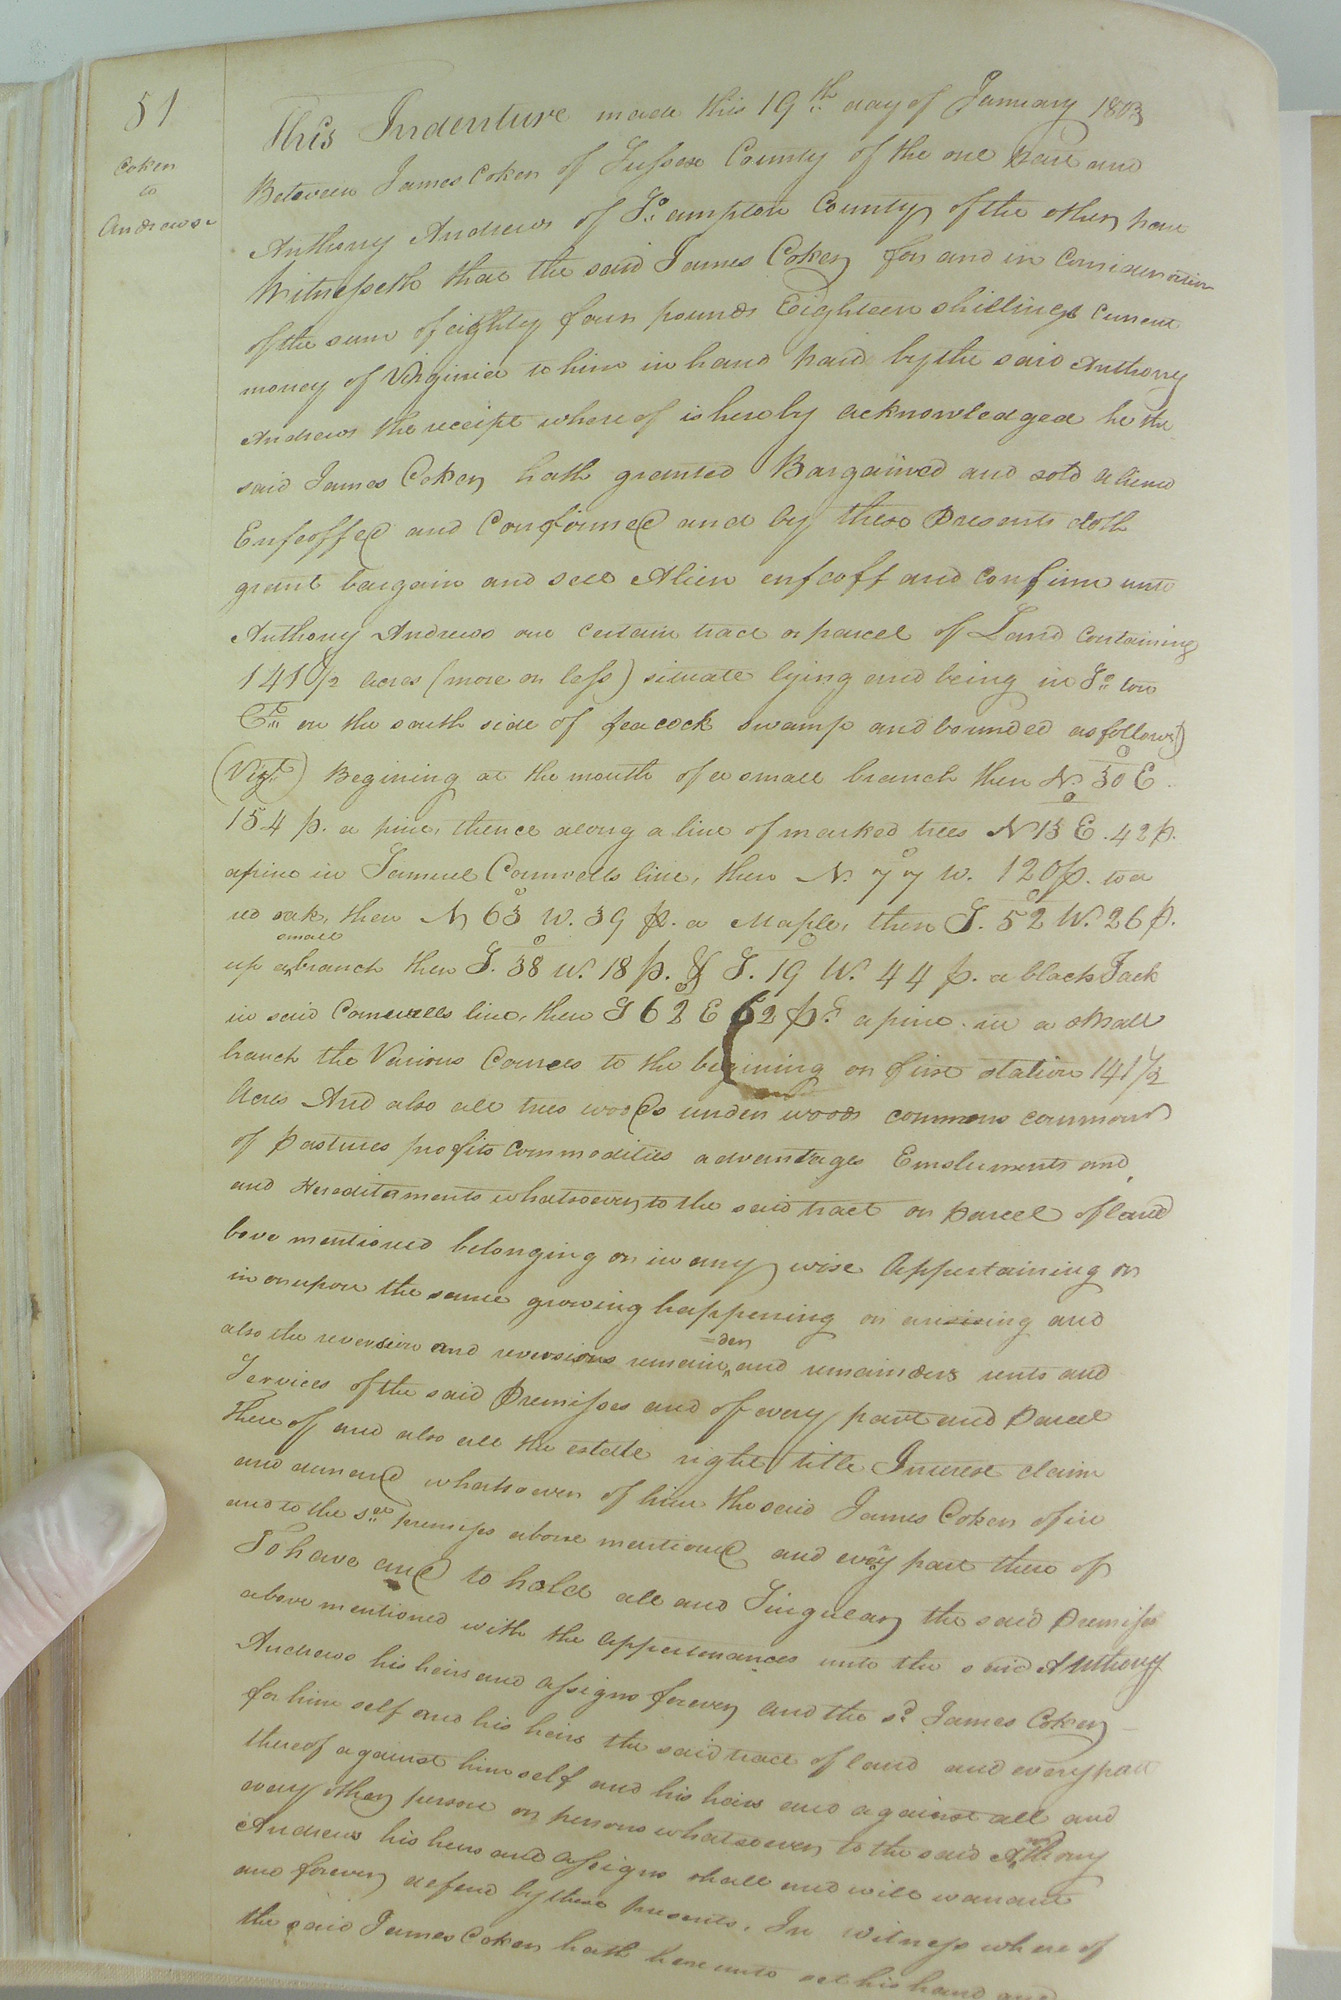 51
Coker
to
Andrews
This Indenture made this 19th day of January 1803
Between James Coker of Sussex County of the one part and
Anthony Andrews of So. ampton County of the other part
Witnesseth that the said James Coker for and in Consideration
of the sum of eighty four pounds Eighteen shillings current
money of Virginia to him in hand paid by the said Anthony
Andrews the receipt where of is hereby acknowledged he the
said James Coker hath granted Bargained and sold aliend
Enfeoffed and Confirmed and by these Presents doth
grant bargain and sell Alien enfeoff and confirm unto
Anthony Andrews one certain tract or parcel of Land Containing
141 1/2 acres (more or less) situate lying and being in So. ton
Cty. on the south side of seacock swamp and bounded as follows)
(Vizt.) Begining at the mouth of a small branch then N. 30° E.
154 p. a pine, thence along a line of marked trees N 13° E. 42 p.
a pine in Samuel Cornwells line, then N. 77° W. 120 p. to a
red oak, then N 63° W. 39 p. a Maple, then S. 52° W. 26 p.
up a small branch then S. 38° W. 18 p. & S. 19° W. 44 p. a black Jack
in said Cornwells line, then S 62° E 62 ps. a pine in a small
branch the Various Courses to the begining or first station 141 1/2
Acres And also all trees woods under woods commons common
of pastures profits commodities advantages Emoluments and
and Hereditaments whatsoever to the said tract or parcel of land
bove mentioned belonging or in any wise Appertaining or
in or upon the same growing happening or arising and
also the reversion and reversions remain=der and remainders rents and
Services of the said Premisses and of every part and Parcel
there of and also all the estate right title Interest claim
and demand whatsoever of him the said James Coker of in
and to the sd. premises above mentioned and every part there of
To have and to hold all and Singular the said Premises
above mentioned with the appertenances unto the said Anthony
Andrews his heirs and assigns forever and the sd. James Coker
for him self and his heirs the said tract of land and every part
thereof against him self and his heirs and against all and
every other person or persons whatsoever to the said Anthony
Andrews his heirs and assigns shall and will warrant
and forever defend by these presents. In witness where of
the said James Coker hath here unto set his hand and